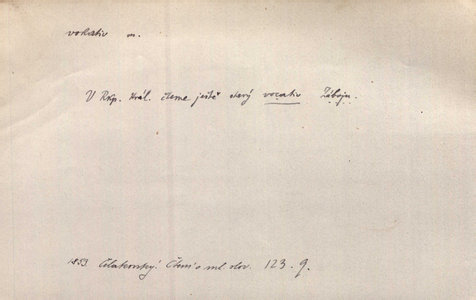 vokativ m.
V Rkp. Král. čteme ještě starý vocativ Záboju.
1853. Čelakovský: Čtení o ml. slov. 123. 9.